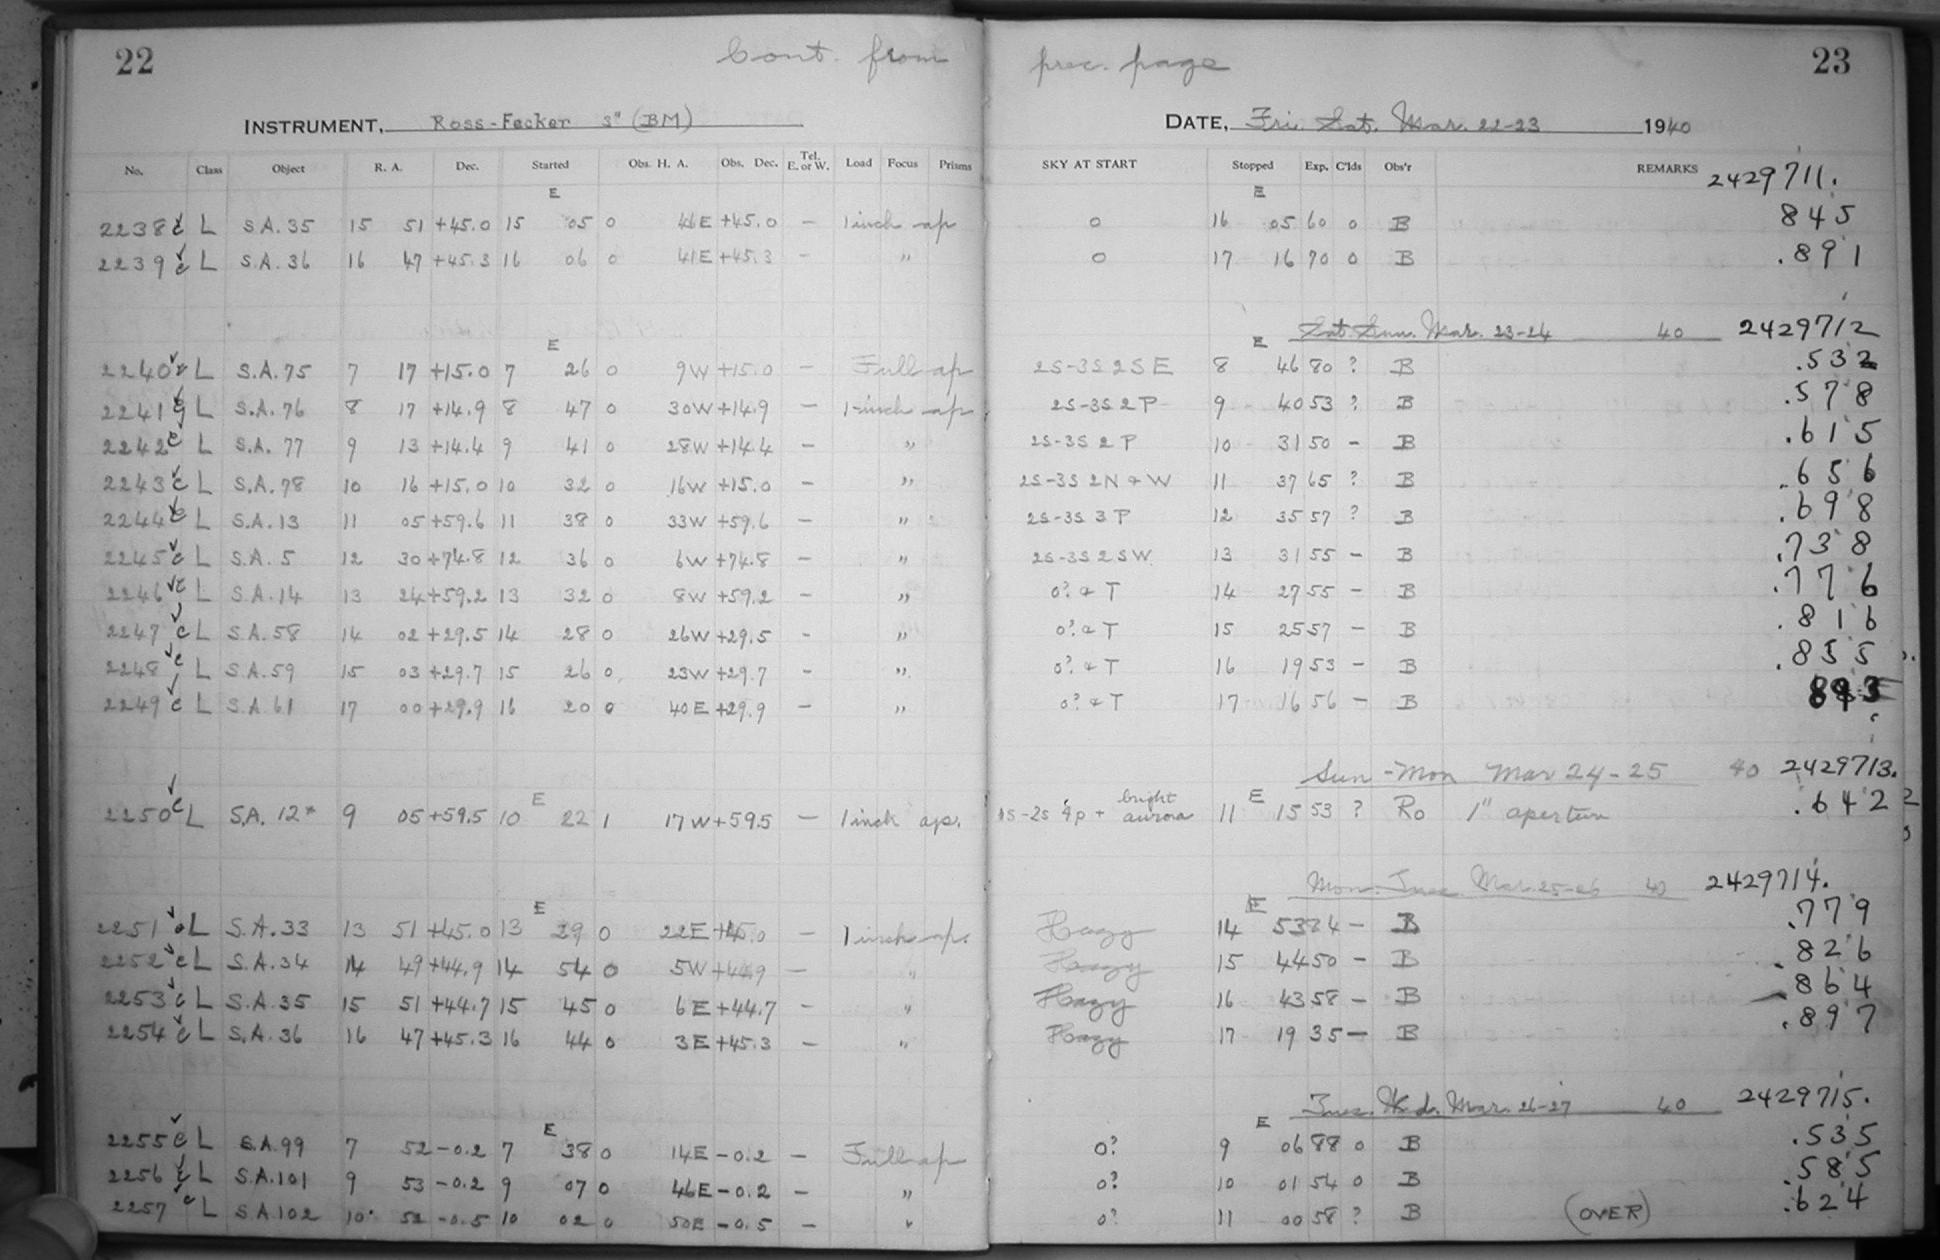 22 Cont. from prec. page 23
INSTRUMENT, Ross-Fecker 3" (BM) DATE, Fri. Sat. Mar. 22-23 1940
No. Class Object R. A. Dec. Started Obs. H. A. Obs. Dec. Tel. E. or W. Load Focus Prisms SKY AT START Stopped Exp. C'lds Obs'r REMARKS 2429711.
E E
2238 c L S.A. 35 15 51 +45.0 15 05 0 46E +45.0 – 1 inch ap 0 16 05 60 0 B 845
2239 c L S.A. 36 16 47 +45.3 16 06 0 41E +45.3 – " 0 17 16 70 0 B .891
Sat. Sun. Mar. 23-24 40 2429712
E E
2240 L S.A. 75 7 17 +15.0 7 26 0 9W +15.0 – Full ap 2S-3S 2SE 8 46 80 ? B .532
2241 L S.A. 76 8 17 +14.9 8 47 0 30W +14.9 – 1 inch ap 2S-3S 2P 9 40 53 ? B .578
2242 c L S.A. 77 9 13 +14.4 9 41 0 28W +14.4 – " 2S-3S 2P 10 31 50 – B .615
2243 c L S.A. 78 10 16 +15.0 10 32 0 16W +15.0 – " 2S-3S 2N & W 11 37 65 ? B .656
2244 c L S.A. 13 11 05 +59.6 11 38 0 33W +59.6 – " 2S-3S 3P 12 35 57 ? B .698
2245 c L S.A. 5 12 30 +74.8 12 36 0 6W +74.8 – " 2S-3S 2SW 13 31 55 – B .738
2246 c L S.A. 14 13 24 +59.2 13 32 0 8W +59.2 – " 0? & T 14 27 55 – B .776
2247 c L S.A. 58 14 02 +29.5 14 28 0 26W +29.5 – " 0? & T 15 25 57 – B .816
2248 c L S.A. 59 15 03 +29.7 15 26 0 23W +29.7 – " 0? & T 16 19 53 – B .855
2249 c L S.A. 61 17 00 +29.9 16 20 0 40E +29.9 – " 0? & T 17 16 56 – B 893
Sun - Mon Mar 24-25 40 2429713.
E E
2250 c L S.A. 12* 9 05 +59.5 10 22 1 17W +59.5 – 1 inch ap. 1S-2S 4p + bright aurora 11 15 53 ? Ro 1" aperture .642
Mon. Tues. Mar. 25-26 40 2429714.
E E
2251 L S.A. 33 13 51 +45.0 13 29 0 22E +45.0 – 1 inch ap. Hazy 14 53 84 – B .779
2252 c L S.A. 34 14 49 +44.9 14 54 0 5W +44.9 – " Hazy 15 44 50 – B .826
2253 c L S.A. 35 15 51 +44.7 15 45 0 6E +44.7 – " Hazy 16 43 58 – B .864
2254 c L S.A. 36 16 47 +45.3 16 44 0 3E +45.3 – " Hazy 17 19 35 – B .897
Tues. Wed. Mar. 26-27 40 2429715.
E E
2255 c L S.A. 99 7 52 -0.2 7 38 0 14E -0.2 – Full ap 0? 9 06 88 0 B .535
2256 c L S.A. 101 9 53 -0.2 9 07 0 46E -0.2 – " 0? 10 01 54 0 B .585
2257 c L S.A. 102 10 52 -0.5 10 02 0 50E -0.5 – " 0? 11 00 58 ? B (OVER) .624